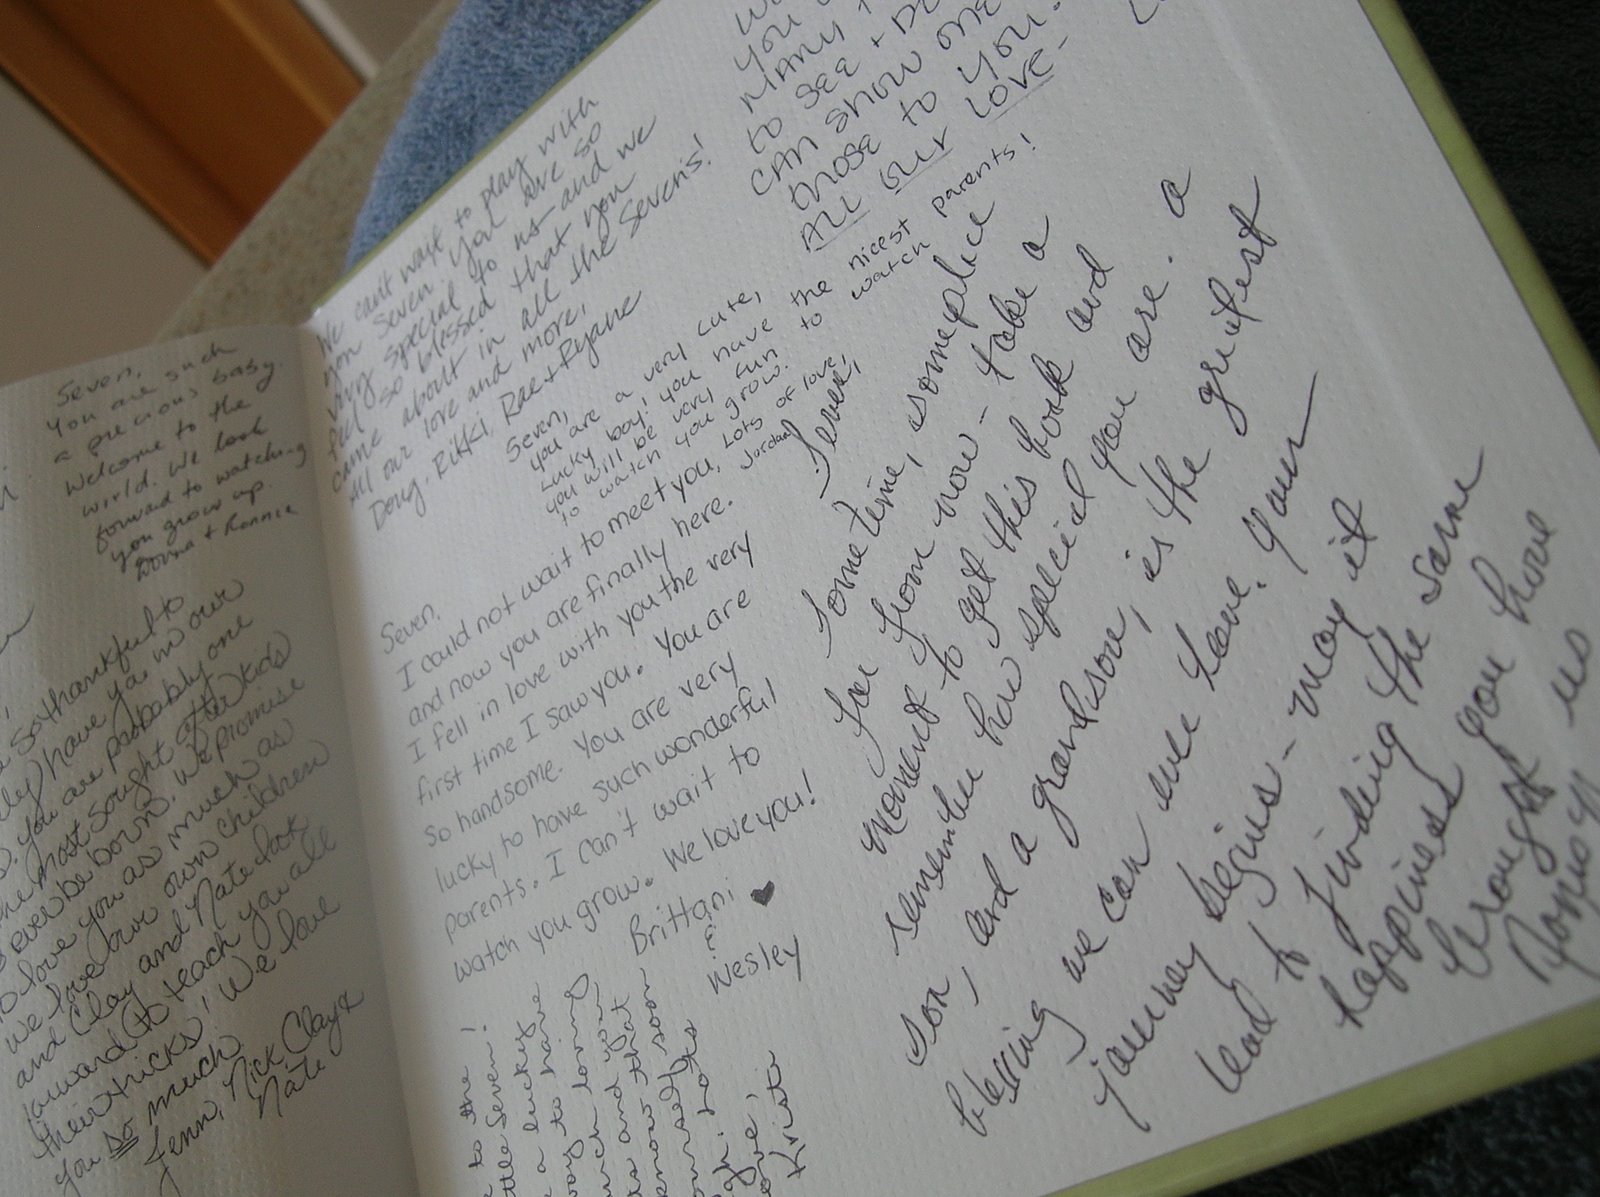 Seven,
you are such
a precious baby.
Welcome to the
world. We look
forward to watching
you grow up.
Donna + Ronnie
so thankful to
have you in our
you are probably one
most sought after kids
ever be born. We promise
to love you as much as
we love our own children
and Clay and Nate look
forward to teach you all
their tricks! We love
you so much
Jenn, Nick, Clay &
Nate
We can't wait to play with
you Seven. You are so
very special to us and we
feel so blessed that you
came about in all the Sevens!
All our love and more,
Doug, Rikki, Rae + Ryane
Seven,
you are a very cute,
lucky boy! you have the nicest parents!
you will be very fun to watch
to watch you grow.
Lots of love,
Jordan
Seven,
I could not wait to meet you,
and now you are finally here.
I fell in love with you the very
first time I saw you. You are
so handsome. You are very
lucky to have such wonderful
parents. I can't wait to
watch you grow. We love you!
Brittani
&
Wesley
to the
Seven!
a lucky
to have
loving
and your
and that
know soon
love,
Krista
you
many
to see + do
can show one
those to you.
All our love-
Seven,
Sometime, someplace
far from now - take a
moment to get this book and
remember how special you are. a
son, and a grandson, is the greatest
blessing we can ever have. Your
journey begins - may it
lead to finding the same
happiness you have
brought us